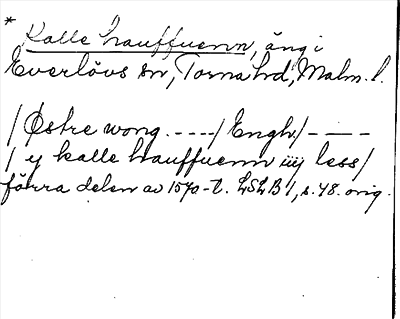 * Kalle hauffuenn, äng i
Everlövs sn, Torna hd, Malm. l.
/ Østre wong. ----/ Engh/ - — -
/ y kalle hauffuenn iiij less/
förra delen av 1570-t. LSLB 1, s. 48. orig.